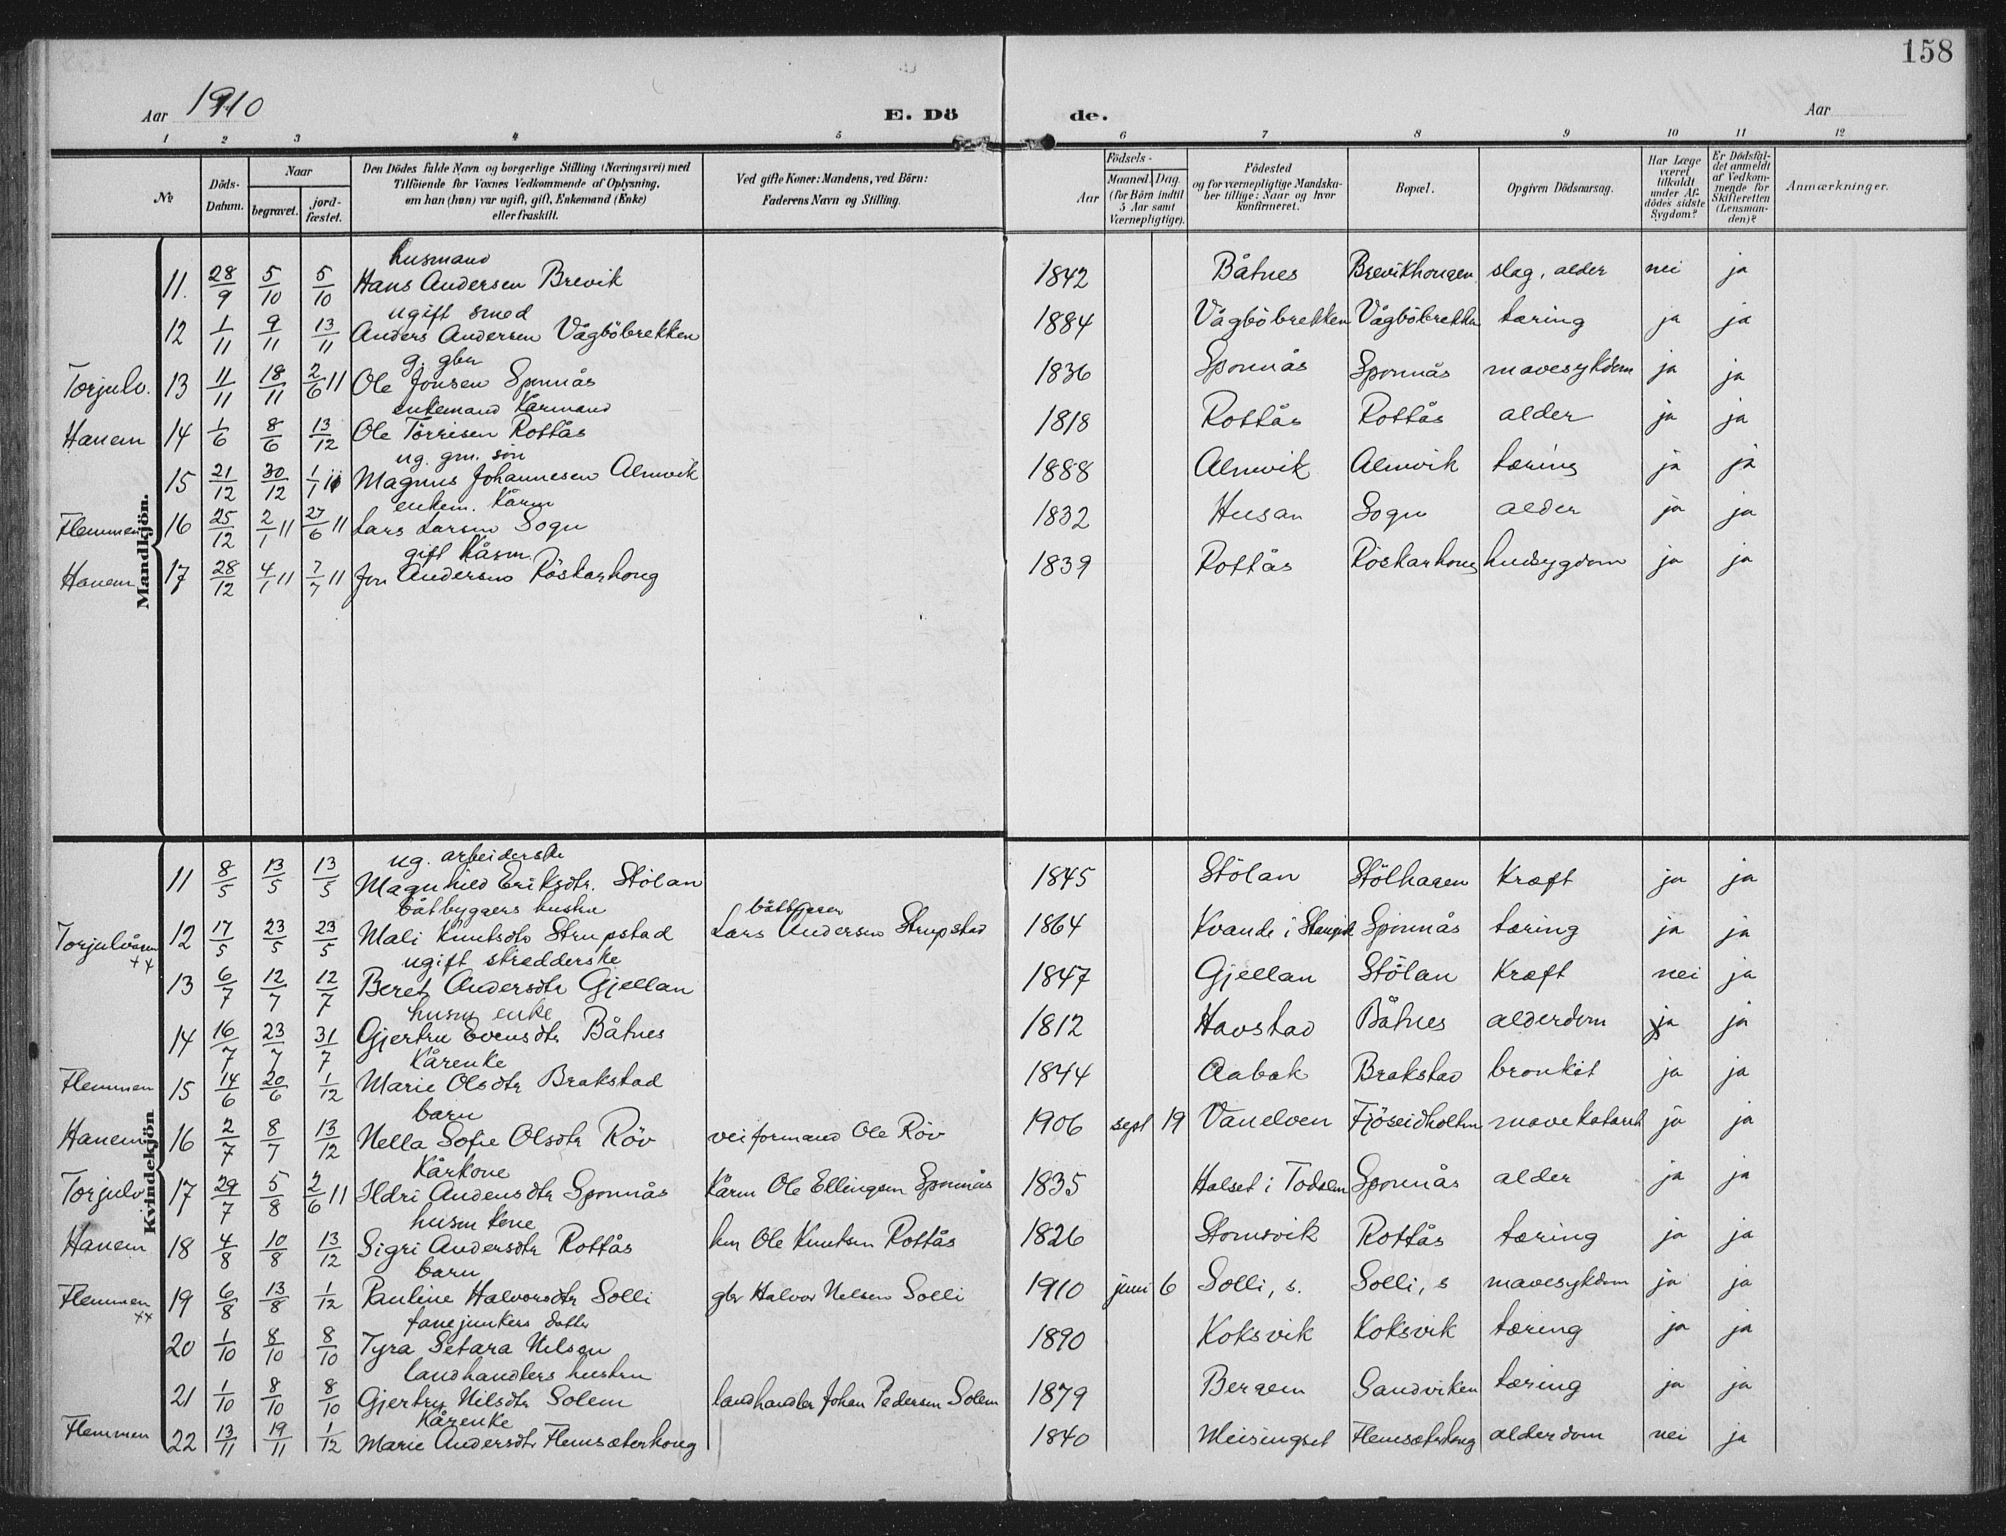 158
Aar 1910
E. Döde.
Aar
1 2 3 4 5 6 7 8 9 10 11 12
№
Döds-Datum.
Naar
begravet.
jordfæstet.
Den Dödes fulde Navn og borgerlige Stilling (Næringsvei) med Tilföiende for Voxnes Vedkommende af Oplysning, om han (hun) var ugift, gift, Enkemand (Enke) eller fraskilt.
Ved gifte Koner: Mandens, ved Börn: Faderens Navn og Stilling.
Födsels-
Aar
Maaned. Dag. (for Börn indtil 5 Aar samt Værnepligtige).
Födested og for værnepligtige Mandskaber tillige: Naar og hvor konfirmeret.
Bopæl.
Opgiven Dödsaarsag.
Har Læge været tilkaldt under Afdödes sidste Sygdom?
Er Dödsfaldet anmeldt af Vedkommende for Skifteretten (Lensmanden)?
Anmærkninger.
Mandkjön.
husmand
11. 28/9 5/10 5/10 Hans Andersen Brevik 1842 Båtnes Brevikhougen slag, alder nei ja
ugift smed
12 1/11 9/11 13/11 Anders Andersen Vågböbrekken 1884 Vågböbrekken Vågböbrekken tæring ja ja
g. gbr
Torjulv. 13 11/11 18/11 2/6 11 Ole Jonsen Sponnås 1836 Sponnås Sponnås mavesykdom ja ja
enkemand Kårmand
Hanem 14 1/6 8/6 13/12 Ole Törrisen Rottås 1818 Rottås Rottås alder ja ja
ug. gm. sön
15 21/12 30/12 1/1 11 Magnus Johannesen Almvik 1888 Almvik Almvik tæring ja ja
enkem. Kårm
Flemmen 16 25/12 2/1 11 27/6 11 Lars Larsen Sogn 1832 Husan Sogn alder ja ja
gift Kårm.
Hanem 17 28/12 4/1 11 7/7 11 Jon Andersen Röskarhoug 1839 Rottås Röskarhoug hudsygdom ja ja
Kvindekjön
ug. arbeiderske
11 8/5 13/5 13/5 Magnhild Eriksdtr. Stölan 1845 Stölan Stölhagen Kræft ja ja
båtbyggers hustru
Torjulvågen ++ 12 17/5 23/5 23/5 Mali Knutsdtr Strupstad båtbygger Lars Andersen Strupstad 1864 Kvande i Stangvik Sponnås tæring ja ja
ugift skredderske
13 6/7 12/7 12/7 Beret Andersdtr Gjellan 1847 Gjellan Stölan Kræft nei ja
husm enke
14 16/7 23/7 31/7 Gjertru Evensdtr Båtnes 1812 Havstad Båtnes alderdom ja ja
Kårenke
Flemmen 15 14/6 20/6 1/12 Marie Olsdtr Brakstad 1844 Aabak Brakstad bronkit ja ja
barn
Hanem 16 2/7 8/7 13/12 Nella Sofie Olsdtr Röv veiformand Ole Röv 1906 sept 19 Vanelven Fjöseidholtm mavekatarrh ja ja
Kårkone
Torjulv 17 29/7 5/8 2/6 11 Ildri Andersdtr Sponnås Kårm Ole Ellingsen Sponnås 1835 Halset i Todalen Sponnås alder ja ja
husm kone
Hanem 18 4/8 10/8 13/12 Sigri Andersdtr Rottås hm Ole Knutsen Rottås 1826 Stomsvik Rottås tæring ja ja
barn
Flemmen ++ 19 6/8 13/8 1/12 Pauline Halvorsdtr Solli gbr Halvor Nilsen Solli 1910 juni 6 Solli, s. Solli, s mavesykdom ja ja
fanejunkers datter
20 1/10 8/10 8/10 Tyra Setara Nilsen 1890 Koksvik Koksvik tæring ja ja
landhandlers hustru
21 1/10 8/10 8/10 Gjertru Nilsdtr Solem landhandler Johan Pedersen Solem 1879 Bergem Sandviken tæring ja ja
Kårenke
Flemmen 22 13/11 19/11 1/12 Marie Andersdtr Flemsæterhoug 1840 Meisingset Flemsæterhoug alderdom nei ja